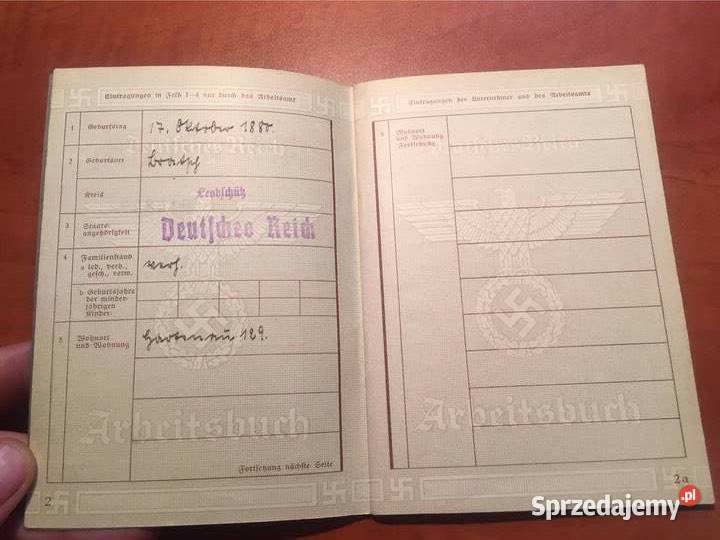 Eintragungen in Feld 1-4 nur durch das Arbeitsamt
1 Geburtstag 17. Oktober 1880.
2 Geburtsort Bratsch
Kreis Leobschütz
3 Staats-
angehörigkeit Deutsches Reich
4 Familienstand verh.
a led., verh.,
gesch., verw.
b Geburtsjahre
der minder-
jährigen
Kinder:
5 Wohnort
und Wohnung Hartenau 129.
Deutsches Reich
Arbeitsbuch
Fortsetzung nächste Seite
2
Eintragungen des Unternehmer und des Arbeitsamts
5 Wohnort
und Wohnung
Fortsetzung
Deutsches Reich
Arbeitsbuch
2a
Sprzedajemy.pl